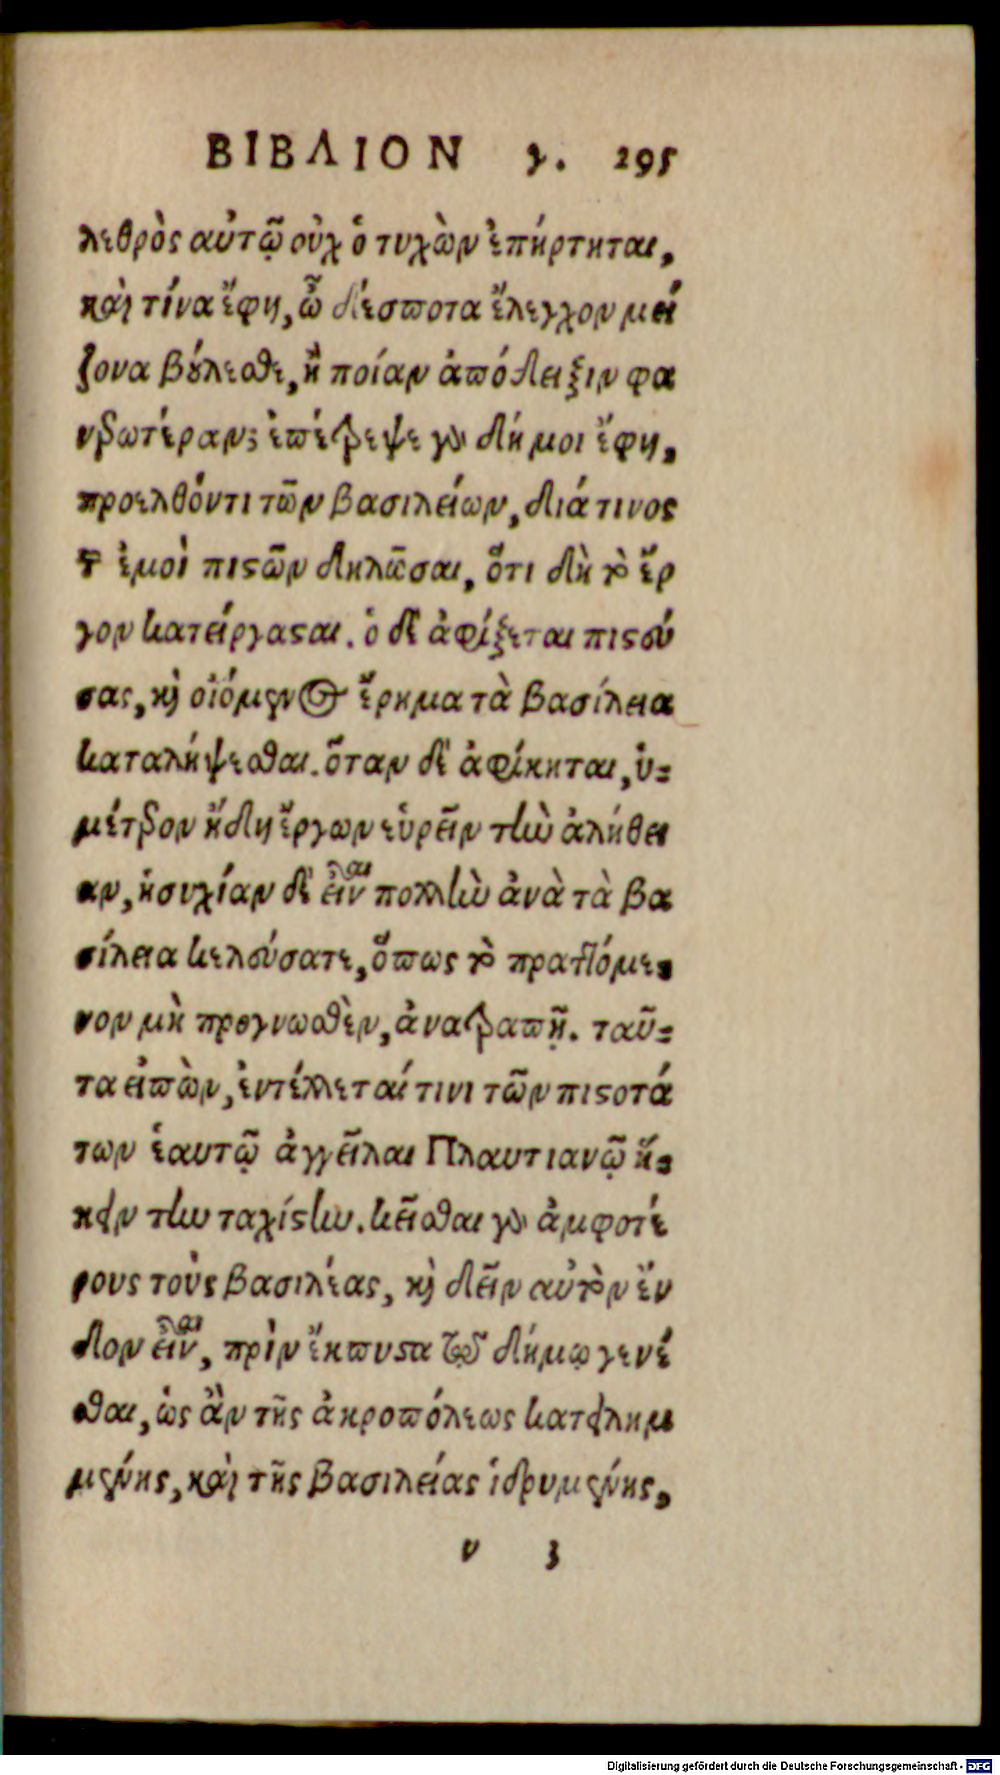 ΒΙΒΛΙΟΝ γ. 295
λεθρὸς αὐτῷ οὐχ ὁ τυχὼν ἐπήρτηται,
καὶ τίνα ἔφη, ὦ δέσποτα ἔλεγχον μεί
ζονα βούλεσθε, ἢ ποίαν ἀπόδειξιν φα
νερωτέραν; ἐπίτρεψε γοῦν δή μοι ἔφη,
προελθόντι τῶν βασιλείων, διά τινος
τῶν ἐμοὶ πιστῶν δηλῶσαι, ὅτι δὴ τὸ ἔρ
γον κατείργασται. ὁ δὲ ἀφίξεται πιστεύ
σας, καὶ οἰόμενος ἔρημα τὰ βασίλεια
καταλήψεσθαι. ὅταν δὲ ἀφίκηται, ὑ-
μέτερον ἤδη ἔργων εὑρεῖν τὴν ἀλήθει
αν, ἡσυχίαν δὲ εἶναι πολλὴν ἀνὰ τὰ βα
σίλεια κελεύσατε, ὅπως τὸ πραττόμε-
νον μὴ προγνωσθὲν, ἀνατραπῇ. ταῦ-
τα εἰπὼν, ἐντέλλεταί τινι τῶν πιστοτά
των ἑαυτῷ ἀγγεῖλαι Πλαυτιανῷ ἥ-
κειν τὴν ταχίστην. κεῖσθαι γοῦν ἀμφοτέ
ρους τοὺς βασιλέας, καὶ δεῖν αὐτὸν ἔν
δον εἶναι, πρὶν ἔκπυστα τῷ δήμῳ γενέ
σθαι, ὡς ἂν τῆς ἀκροπόλεως κατειλημ
μένης, καὶ τῆς βασιλείας ἱδρυμένης,
υ 3
Digitalisierung gefördert durch die Deutsche Forschungsgemeinschaft - DFG